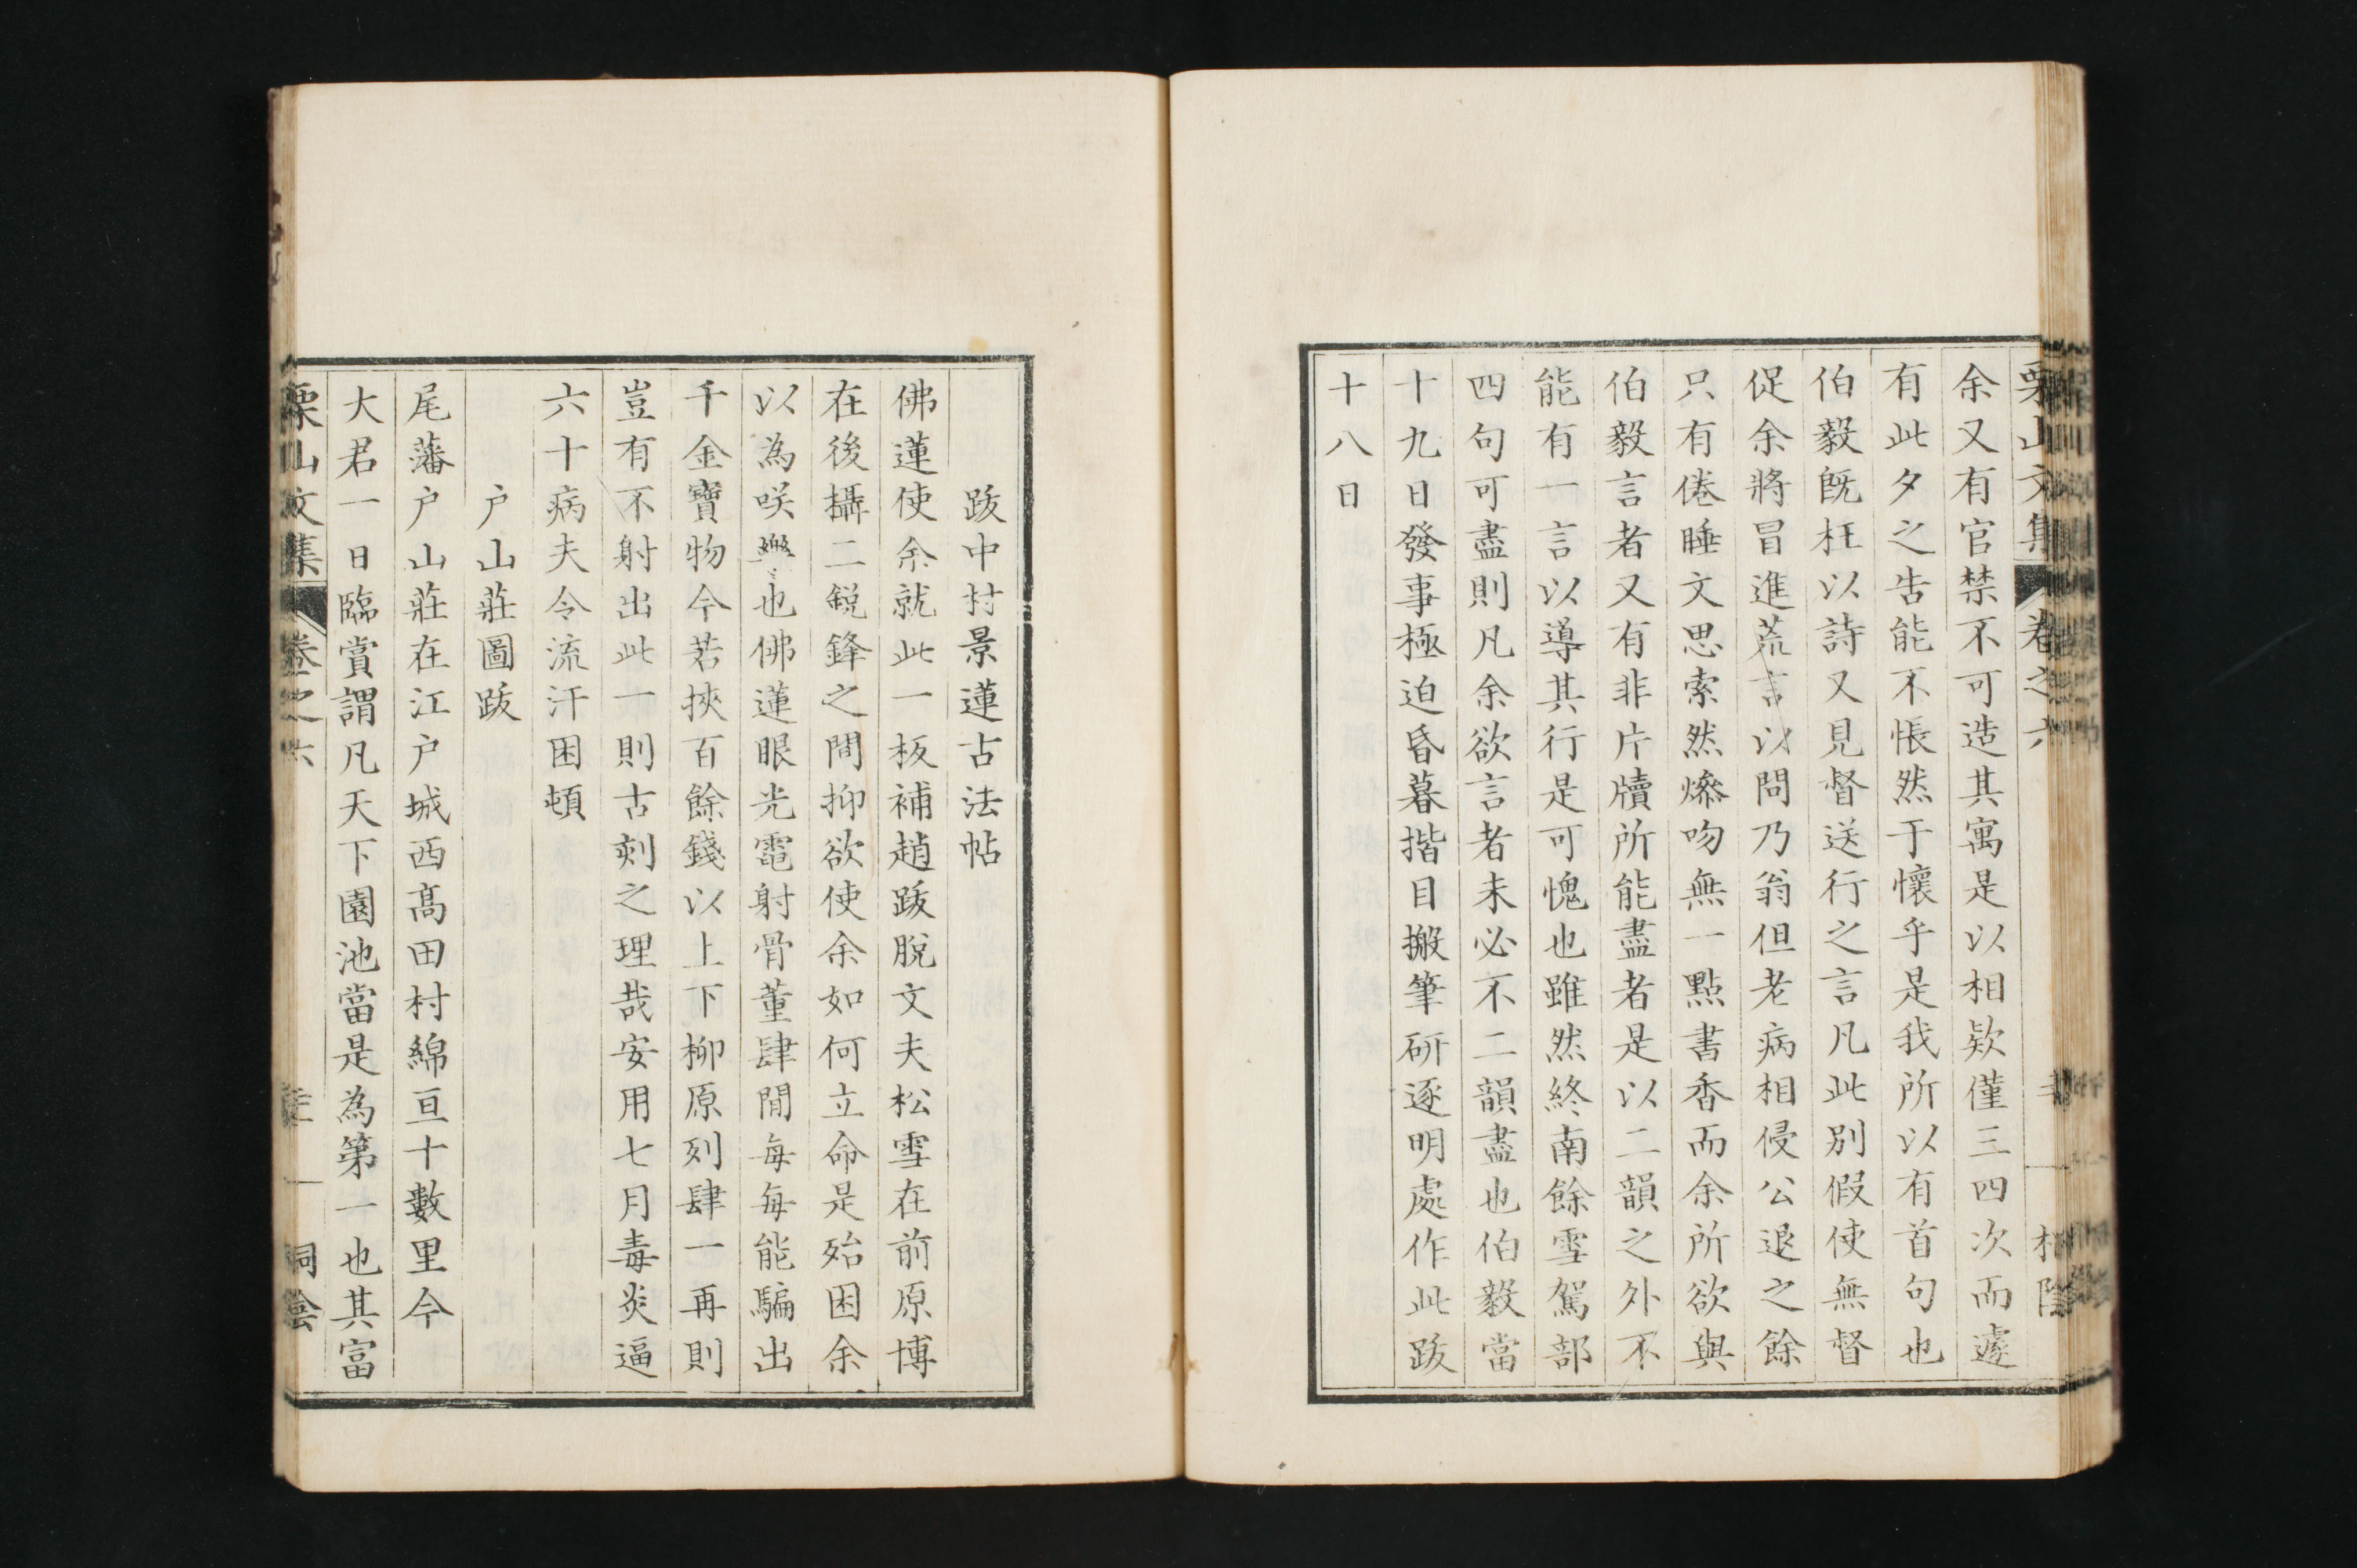 栗山文集 卷之六
余又有官禁不可造其寓是以相欵僅三四次而遽
有此夕之告能不悵然于懷乎是我所以有首句也
伯毅既枉以詩又見督送行之言凡此別假使無督
促余將冒進荒言以問乃翁但老病相侵公退之餘
只有倦睡文思索然燥吻無一點書香而余所欲與
伯毅言者又有非片牘所能盡者是以二韻之外不
能有一言以導其行是可愧也雖然終南餘雪駕部
四句可盡則凡余欲言者未必不二韻盡也伯毅當
十九日發事極迫昏暮揩目搬筆研逐明處作此跋
十八日
跋中村景蓮古法帖
佛蓮使余就此一板補趙跋脫文夫松雪在前原博
在後攝二銳鋒之間抑欲使余如何立命是殆困余
以為咲樂也佛蓮眼光電射骨董肆閒每每能騙出
千金寶物今若挾百餘錢以上下柳原列肆一再則
豈有不射出此一則古刻之理哉安用七月毒炎逼
六十病夫令流汗困頓
戶山莊圖跋
尾藩戶山莊在江戶城西高田村綿亘十數里今
大君一日臨賞謂凡天下園池當是為第一也其富
栗山文集 卷之六 桐陰